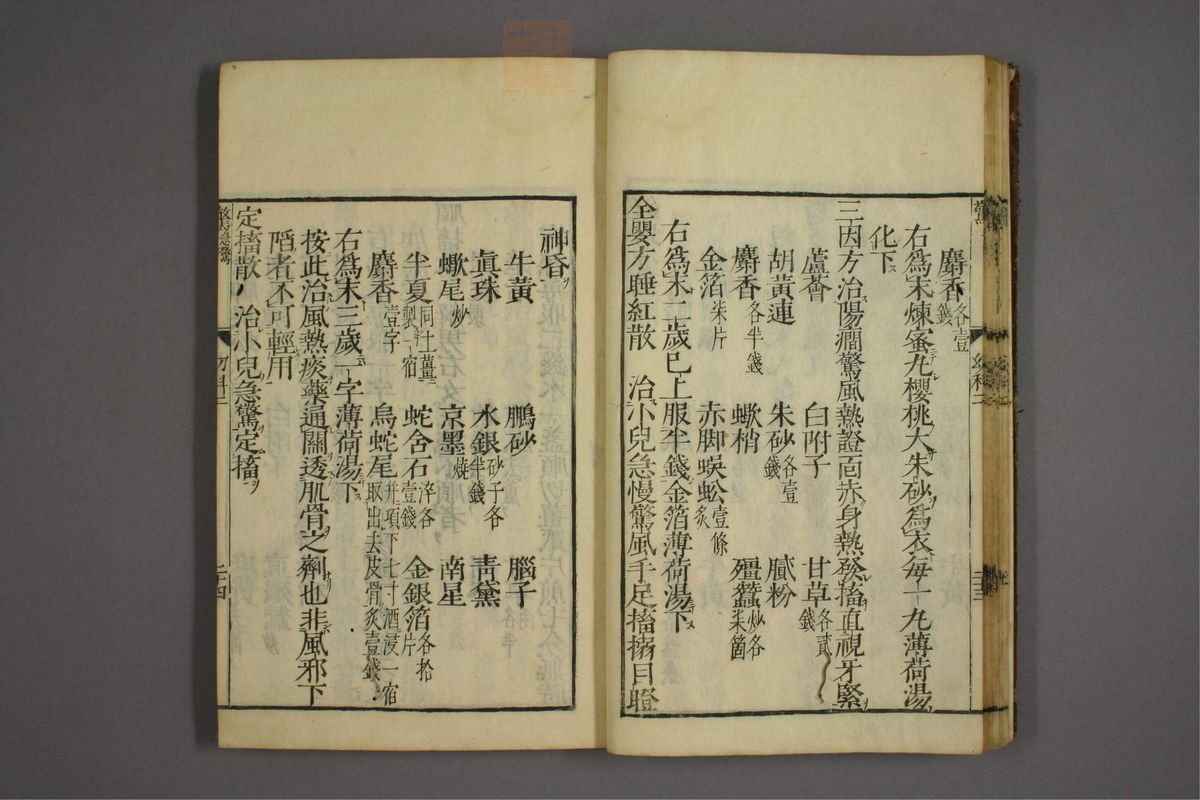 麝香各壹錢
右爲末煉蜜丸櫻桃大朱砂爲衣每一丸薄荷湯
化下
三因方治陽癇驚風熱證面赤身熱發搐直視牙緊
蘆薈 白附子 甘草各貳錢
胡黃連 朱砂各壹錢 膩粉
麝香各半錢 蠍梢 殭蠶炒各柒箇
金箔柒片 赤脚蜈蚣壹條炙
右爲末二歲已上服半錢金箔薄荷湯下
全嬰方睡紅散 治小兒急慢驚風手足搐搦目瞪
幼科二
二十三
神昏
牛黃 鵬砂 腦子
眞珠 水銀砂子各半錢 靑黛
蠍尾炒 京墨燒 南星
半夏同土薑製一宿 蛇含石淬各壹錢 金銀箔各拾片
麝香壹字 烏蛇尾并項下七寸酒浸一宿取出去皮骨炙壹錢
右爲末三歲一字薄荷湯下
按此治風熱痰藥通關透肌骨之劑也非風邪下
䧟者不可輕用
定搐散 治小兒急驚定搐
幼科二
二十四